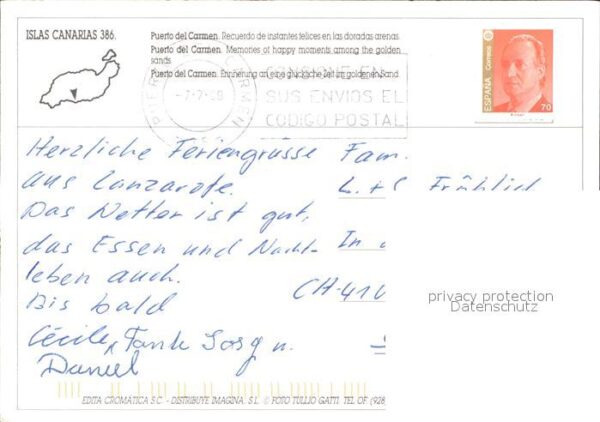 ISLAS CANARIAS 386.
Puerto del Carmen. Recuerdo de instantes felices en las doradas arenas.
Puerto del Carmen. Memories of happy moments among the golden
sands.
Puerto del Carmen. Erinnerung an eine glückliche Zeit im goldenen Sand.
PUERTO CARMEN
-7-7-98
CONSIGNE EN
SUS ENVIOS EL
CODIGO POSTAL
ESPAÑA Correos
70
Herzliche Feriengrüsse
aus Lanzarote.
Das Wetter ist gut,
das Essen und Nacht-
leben auch.
Bis bald
Cécile, Tante u.
Daniel
Fam.
Fröhlich
In
CH-41
privacy protection
Datenschutz
EDITA CROMATICA S.C. - DISTRIBUYE IMAGINA, S.L. © FOTO TULLIO GATTI. TEL OF (928)